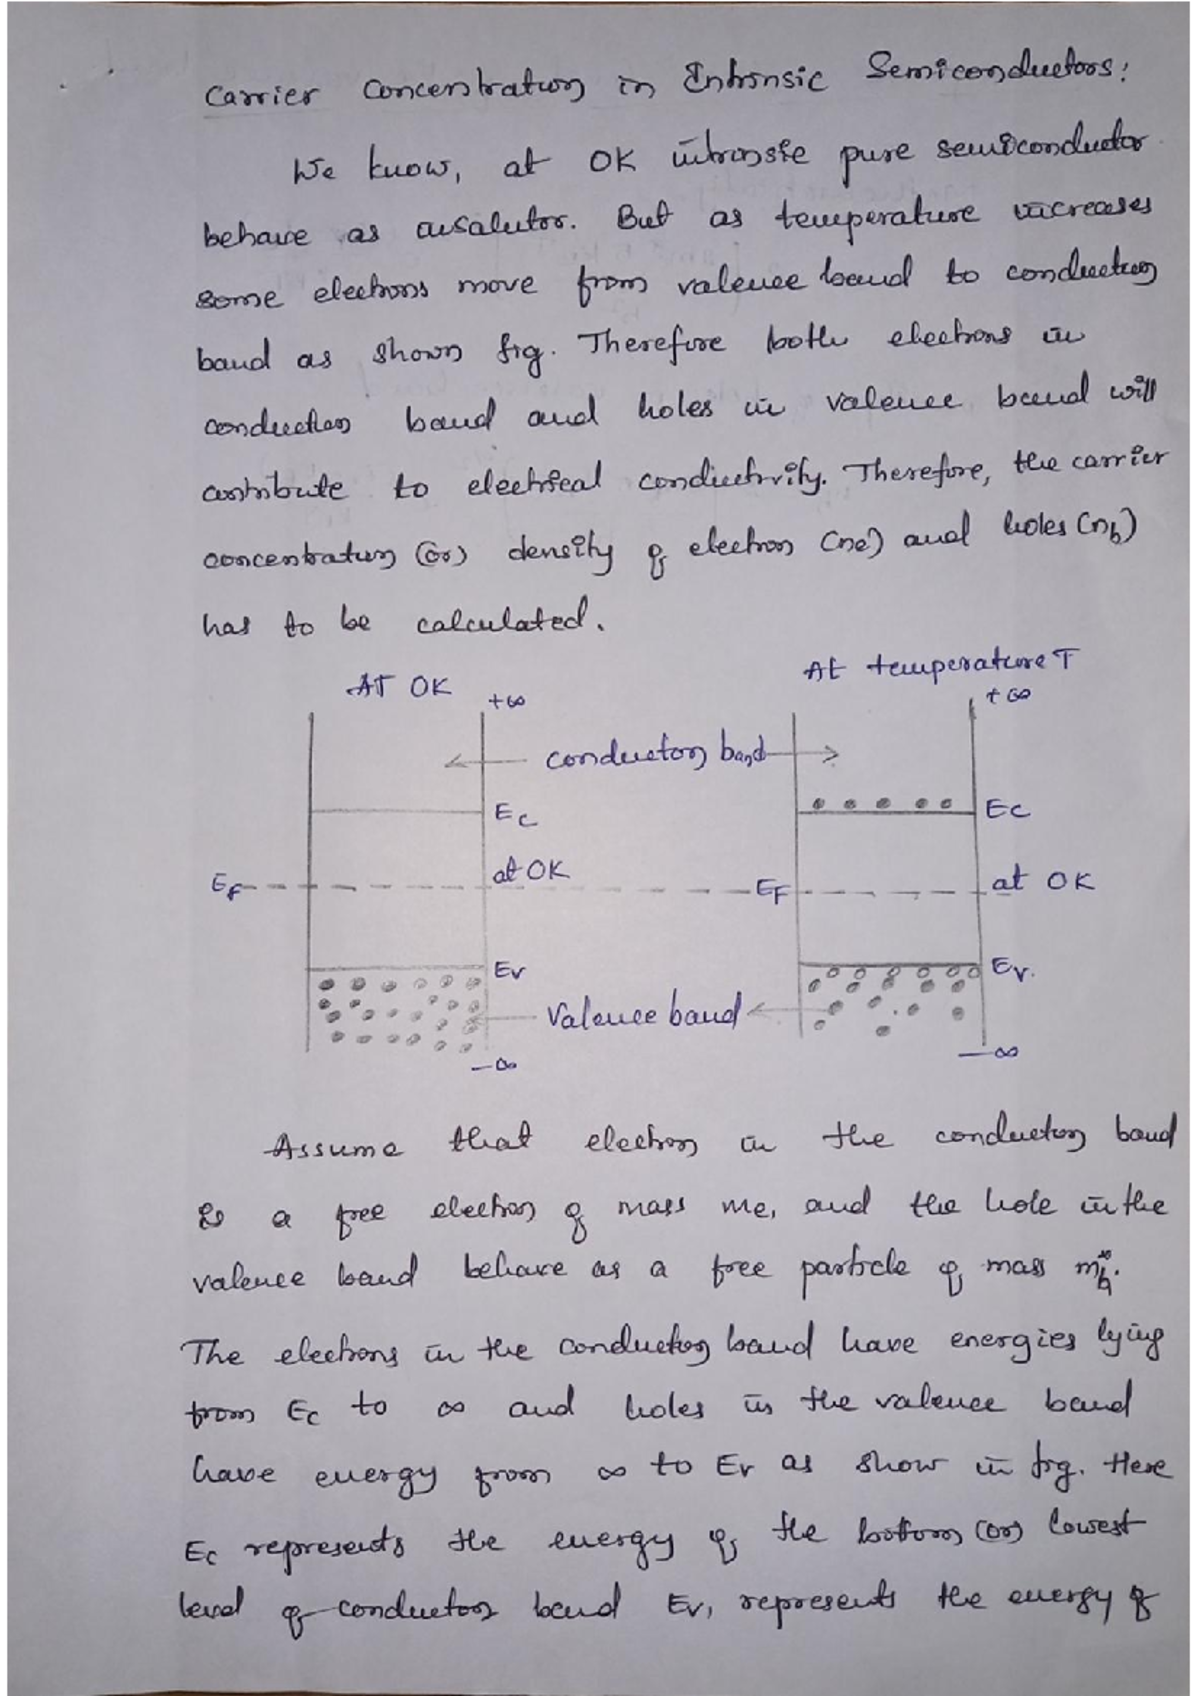 Carrier Concentration in Intrinsic Semiconductors:
We know, at 0K intrinsic pure semiconductor
behave as insalutor. But as temperature increases
some electrons move from valence band to conduction
band as shown fig. Therefore both electrons in
conduction band and holes in valence band will
contribute to electrical conductivity. Therefore, the carrier
concentration (or) density of electron (ne) and holes (nh)
has to be calculated.
AT 0K
At temperature T
+∞
+∞
conduction band
Ec
Ec
at 0K
at 0K
EF
EF
Ev
Ev.
Valence band
-∞
-∞
Assume that electron in the conduction band
is a free electron of mass me, and the hole in the
valence band behave as a free particle of mass m*h.
The electrons in the conduction band have energies lying
from Ec to ∞ and holes in the valence band
have energy from ∞ to Ev as show in fig. Here
Ec represents the energy of the bottom (or) lowest
level of conduction band Ev, represents the energy of